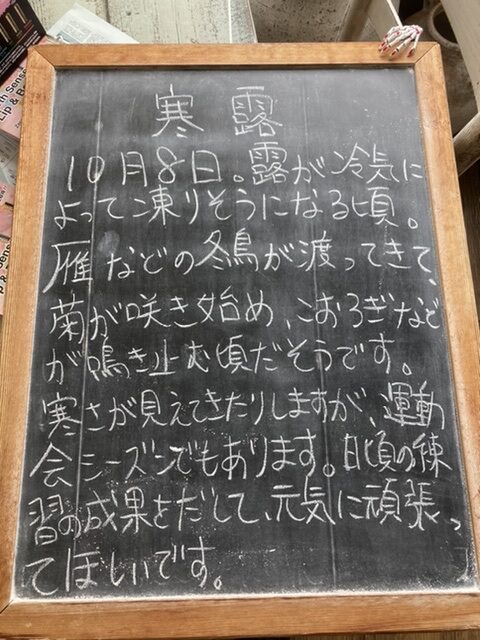 寒露
10月8日。露が冷気に
よって凍りそうになる頃。
雁などの冬鳥が渡ってきて、
菊が咲き始め、こおろぎなど
が鳴き止む頃だそうです。
寒さが見えてきたりしますが、運動
会シーズンでもあります。日頃の練
習の成果をだして、元気に頑張っ
てほしいです。
Sense
Lip &